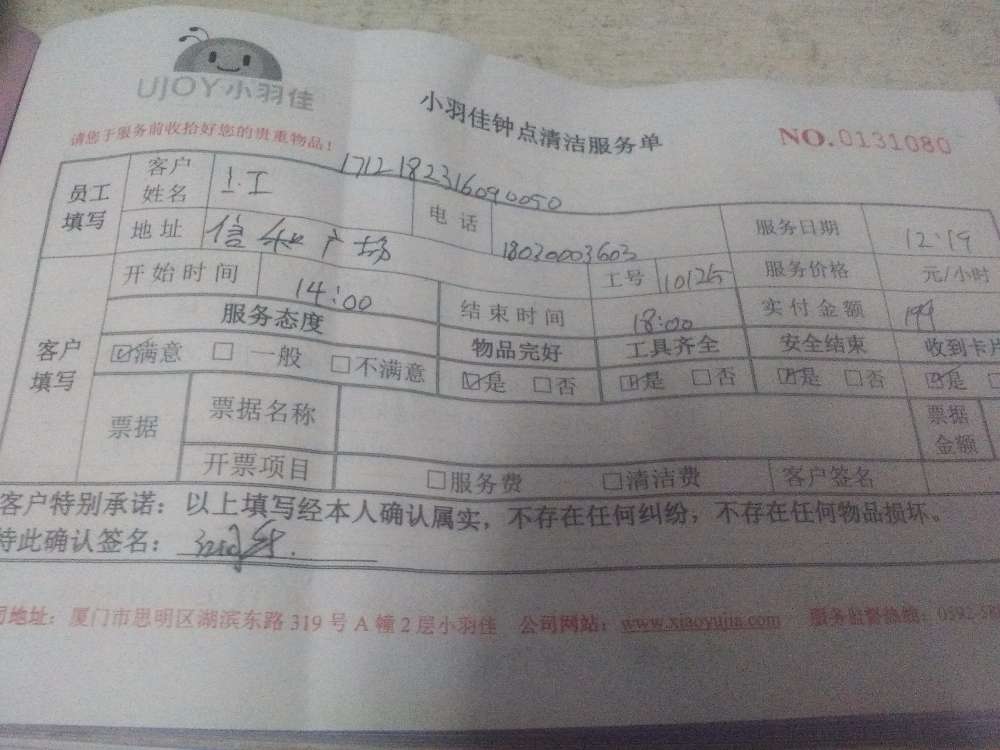 UJOY小羽佳
小羽佳钟点清洁服务单
NO.0131080
请您于服务前收拾好您的贵重物品！
1712182316090050
员工填写 客户姓名 电话 18030003603 服务日期 12:19
地址 信和广场 工号 10125 服务价格 元/小时
客户填写 开始时间 14:00 结束时间 18:00 实付金额
服务态度 物品完好 工具齐全 安全结束 收到卡片
☑满意 □一般 □不满意 ☑是 □否 ☑是 □否 ☑是 □否 ☑是 □
票据 票据名称 票据金额
开票项目 □服务费 □清洁费 客户签名
客户特别承诺：以上填写经本人确认属实，不存在任何纠纷，不存在任何物品损坏。
特此确认签名：
司地址：厦门市思明区湖滨东路319号A幢2层小羽佳 公司网站：www.xiaoyujia.com 服务监督热线：0592-58